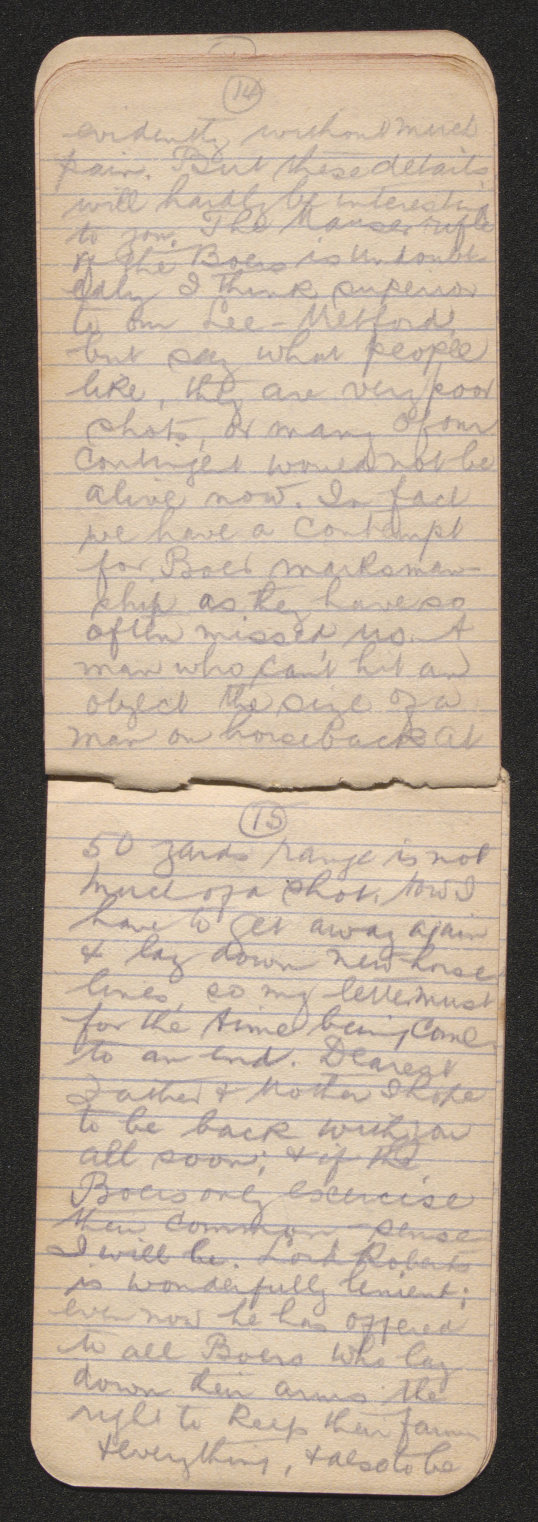 14
evidently without much
pain. But these details
will hardly be interesting
to you. The Mauser rifle
of the Boers is undoubt
edly I think superior
to our Lee-Metford,
but say what people
like, they are very poor
shots, or many of our
Contingent would not be
alive now. In fact
we have a contempt
for Boer marksman-
ship as they have so
often missed us. A
man who can't hit an
object the size of a
man on horseback at
15
50 yards range is not
much of a shot. Now I
have to get away again
& lay down new horse
lines, so my letter must
for the time being come
to an end. Dearest
Father & Mother I hope
to be back with you
all soon; & if the
Boers only exercise
their common-sense
I will be. Lord Roberts
is wonderfully lenient;
even now he has offered
to all Boers who lay
down their arms the
right to keep their farms
& everything, & also to be